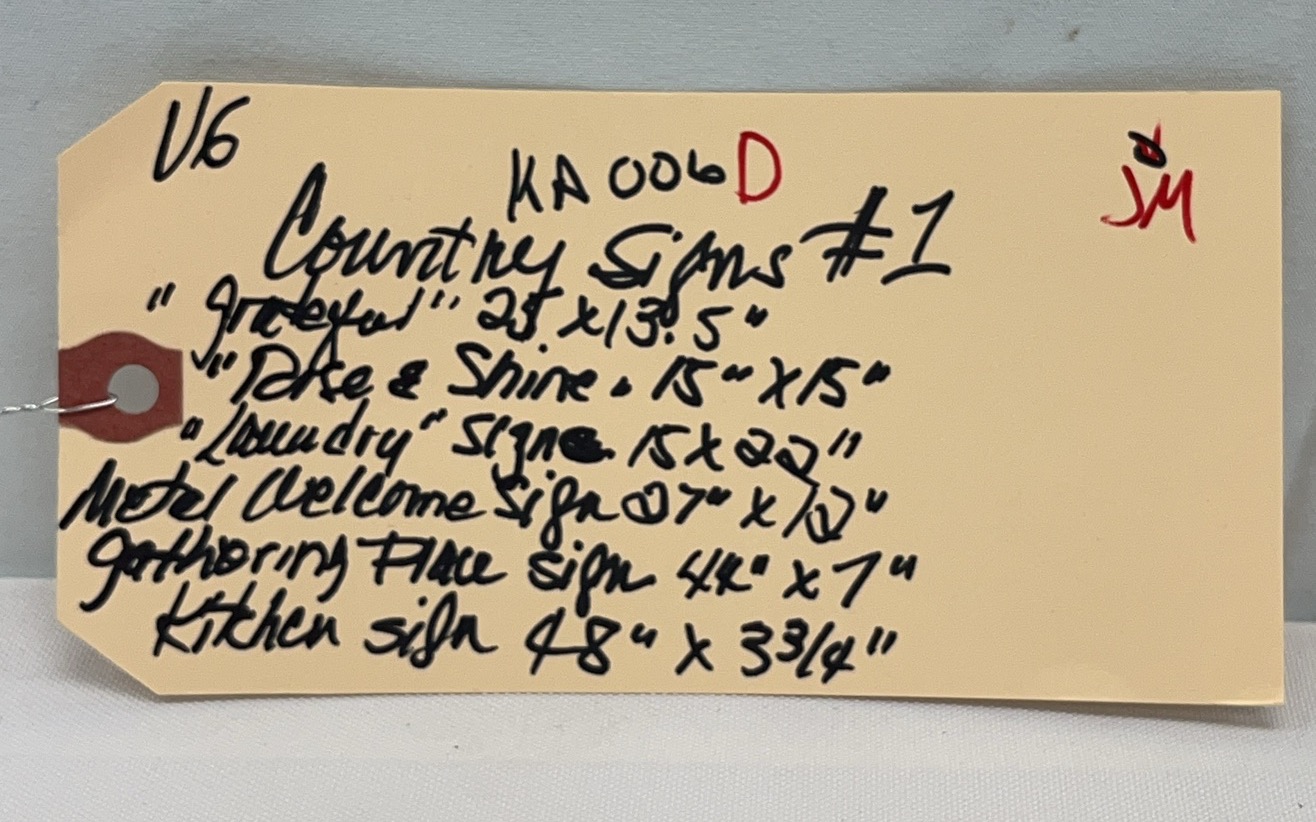 V6
KA006D
JM
Country Signs #1
"Grateful" 25 x 13.5"
"Rise & Shine. 15" x 15"
"Laundry" sign 15 x 22"
Metal Welcome Sign 27" x 12"
Gathering Place sign 44" x 7"
Kitchen sign 48" x 3 3/4"